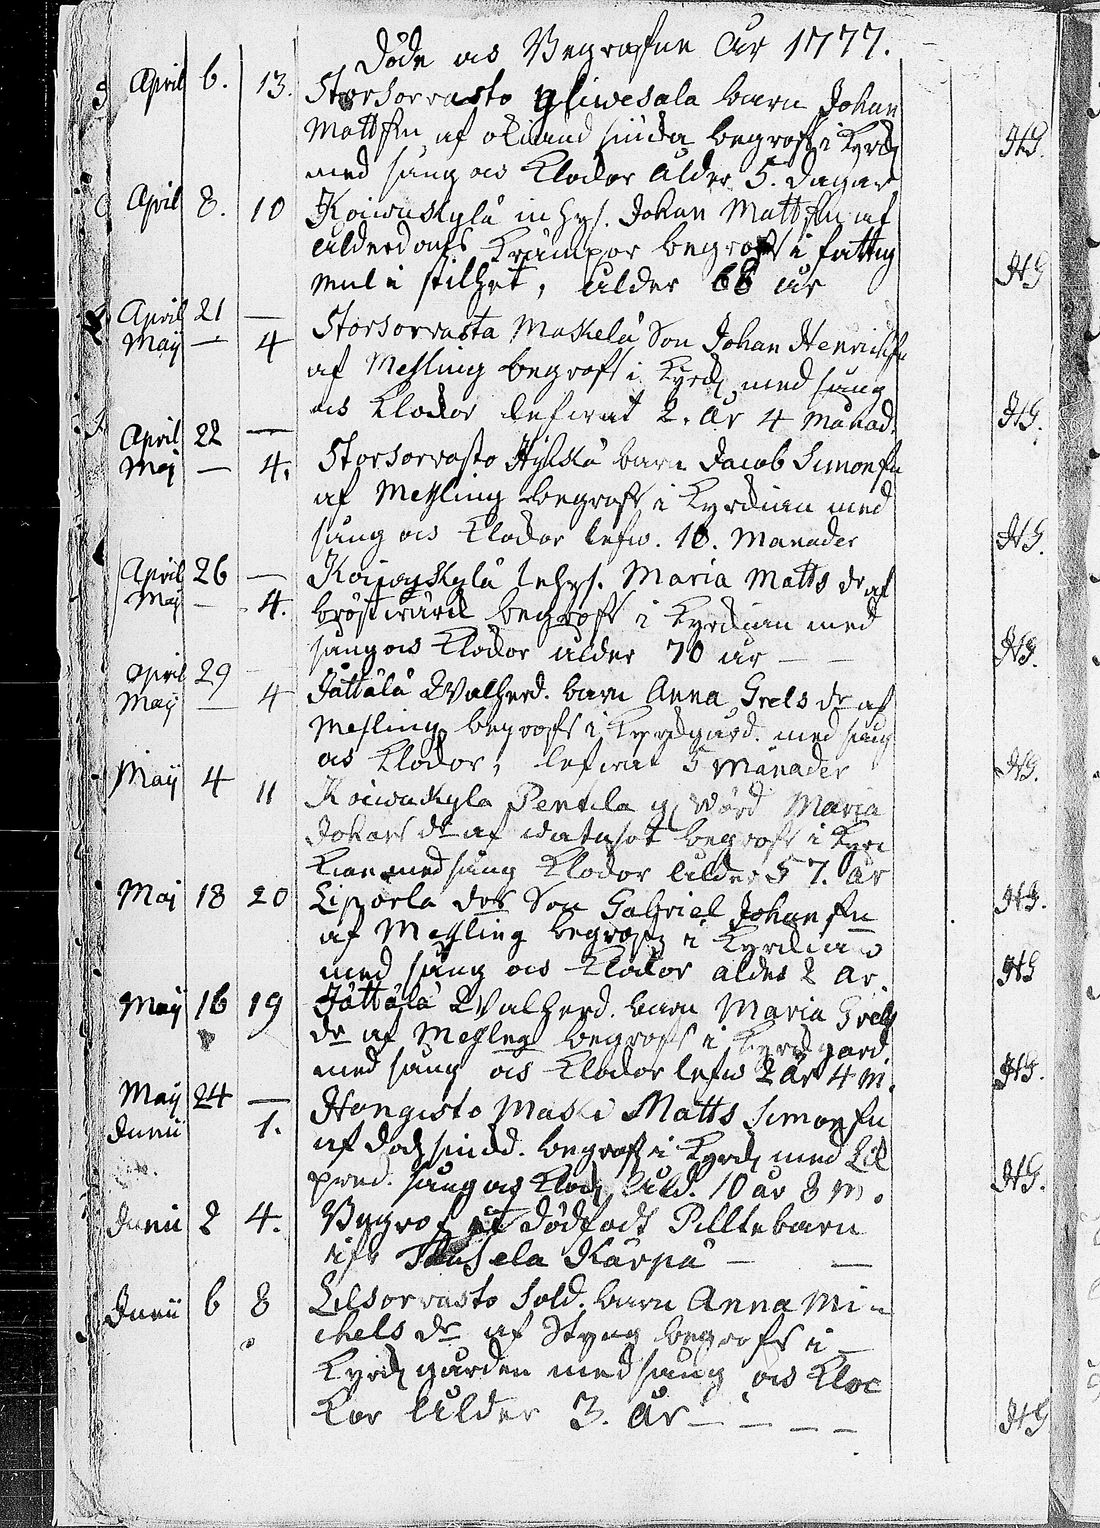 Döde os Begrafne År 1777.
April 6. 13. Storsorrasto Yliwesala barn Johan
Mattssn af okiand siuda begrofs i Kyrck
med sång os Klockor ålder 5. dagar
April 8. 10 Koiwuskylä inhys. Johan Mattssn af
ålderdoms Krämpor begrofs i fattig
mul i stilhet, ålder 68 år
April 21 —
Maij — 4 Storsorrasta Maskelä Son Johan Henrichssn
af Messling begrofs i Kyrck med sång
os Klockor lefwat 2. år 4 månad.
April 22 —
Maj — 4. Storsorrasto barn Jacob Simonssn
af Messling begrofs i Kyrckian med
sång os Klockor lefw. 10. Månader
April 26 —
Maj — 4. Koiwuskylä Inhys. Maria Matts dr af
bröstwärck begrofs i Kyrckian med
sång os Klockor ålder 70 år —
April 29 —
Maij — 4 Jättälä Walherd. barn Anna Grels dr af
Messling begrofs i Kyrckgård. med sång
os Klockor, lefwat 5 Månader
Maij 4 11 Koiwuskyla Pentila Maria
Johans dr af watusot begrofs i Kyrc
kian med sång Klockor ålder 57. År
Maj 18 20 Liporla Son Gabriel Johanssn
af Messling begrofs i Kyrckian
med sång os Klockor ålder 2 År.
Maij 16 19 Jättälä Walherd. barn Maria Grels
dr af Messling begrofs i Kyrckgård
med sång os Klockor lefw 2 år 4 m.
Maij 24 —
Junii 1. Hongisto Maski Matts Simonssn
af begrofs i Kyrck med Lik
pred. sång os Klock ålld. 10 år 8 m.
Junii 2 4. Begrofs et dödfödt Pilltebarn
ifr Karpä —
Junii 6 8 Lilsorrasto Sold. barn Anna Mi-
chels dr af Styng begrofs i
Kyrckgården med sång os Kloc
kor ålder 3. år —